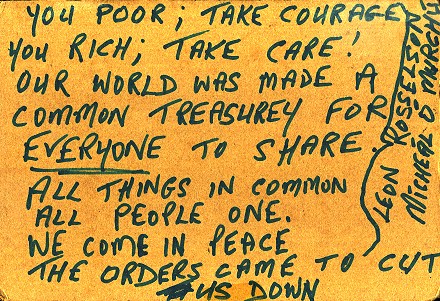 YOU POOR; TAKE COURAGE
YOU RICH; TAKE CARE!
OUR WORLD WAS MADE A
COMMON TREASUREY FOR
EVERYONE TO SHARE.
ALL THINGS IN COMMON
ALL PEOPLE ONE.
WE COME IN PEACE
THE ORDERS CAME TO CUT
US DOWN
LEON ROSSELSON
MICHEÁL O